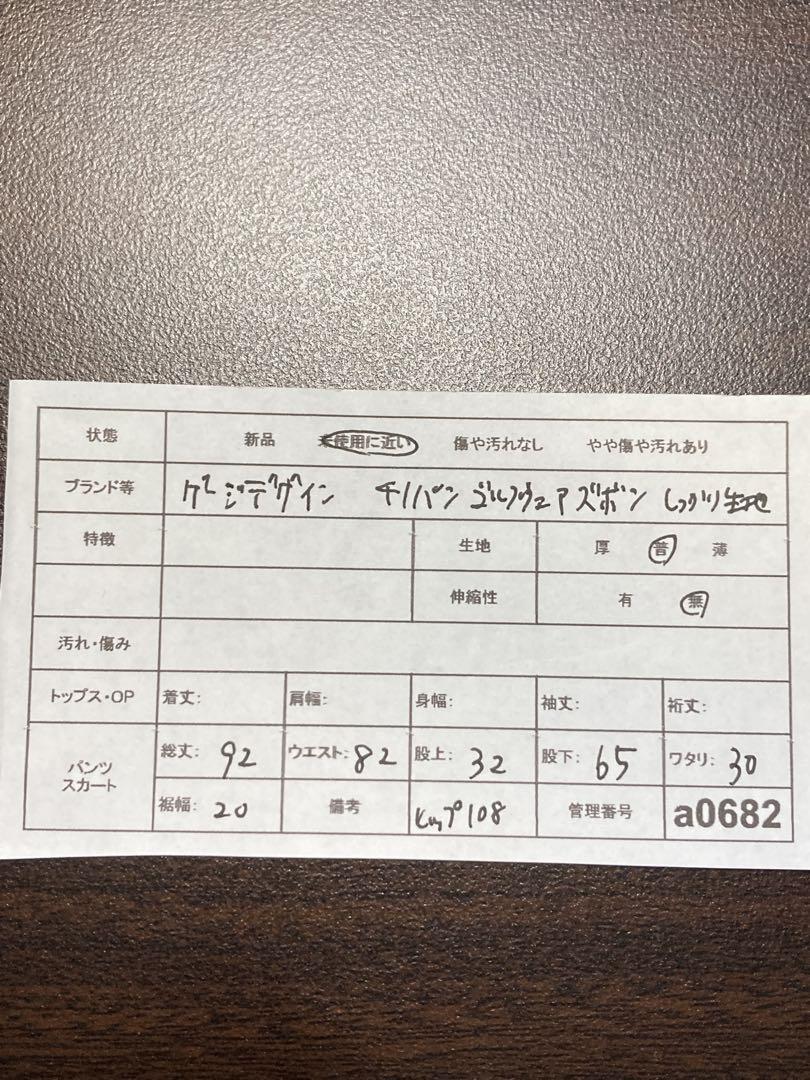 状態 新品 未使用に近い 傷や汚れなし やや傷や汚れあり
ブランド等 ゲージデザイン チノパン ゴルフウェアズボン しっかり生地
特徴 生地 厚 普 薄
伸縮性 有 無
汚れ・傷み
トップス・OP 着丈: 肩幅: 身幅: 袖丈: 裄丈:
パンツ スカート 総丈: 92 ウエスト: 82 股上: 32 股下: 65 ワタリ: 30
裾幅: 20 備考 ヒップ108 管理番号 a0682